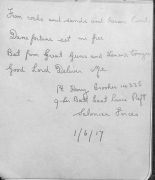 From rocks and sands and barren land
Dame fortune set me free
But from Great Guns and Womens tongues
Good Lord Deliver Me
Pt Henry Brookes
9th Batt East Lancs Regt
Salonica Forces
1/6/17